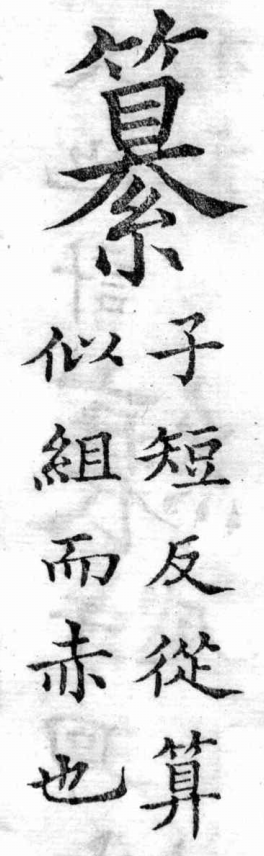 纂
子短反從算
似組而赤也